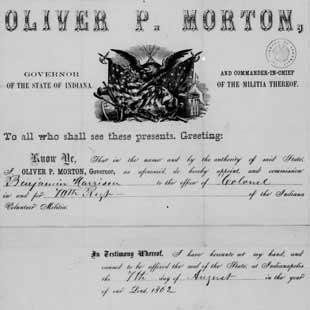 OLIVER P. MORTON,
GOVERNOR
OF THE STATE OF INDIANA.
AND COMMANDER-IN-CHIEF
OF THE MILITIA THEREOF.
To all who shall see these presents, Greeting:
Know Ye, That in the name and by the authority of said State,
I OLIVER P. MORTON, Governor, as aforesaid, do hereby appoint and commission
Benjamin Harrison to the office of Colonel
in and for 70th Regt of the Indiana
Volunteer Militia.
In Testimony Whereof, I have hereunto set my hand, and
caused to be affixed the seal of the State, at Indianapolis
the 7th day of August in the year
of our Lord, 1862